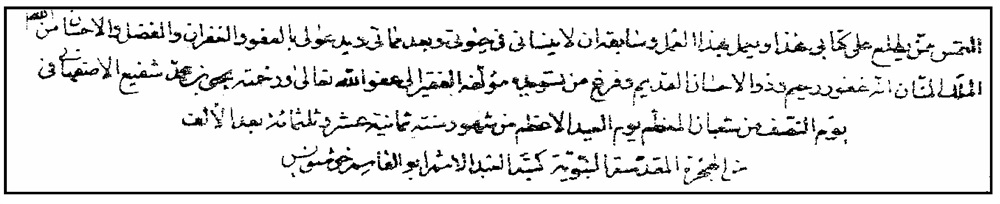 الملتمس ممن يطلع على كتابي هذا ويعمل بهذا العمل وسابقه ان لا ينساني في حيوتي وبعد مماتي ويدعو لي بالعفو والغفران والفضل والاحسان من الله
الملك المنان انه غفور رحيم وذو الاحسان القديم وفرغ من تسويده مؤلفه الفقير الى عفو الله تعالى ورحمته يحيى بن محمد شفيع الاصفهاني في
يوم النصف من شعبان المعظم يوم العيد الاعظم من شهور سنة ثمانية عشر وثلثمائة بعد الألف
من الهجرة المقدسة النبوية كتبه العبد الاثم ابو القاسم خوشنويس